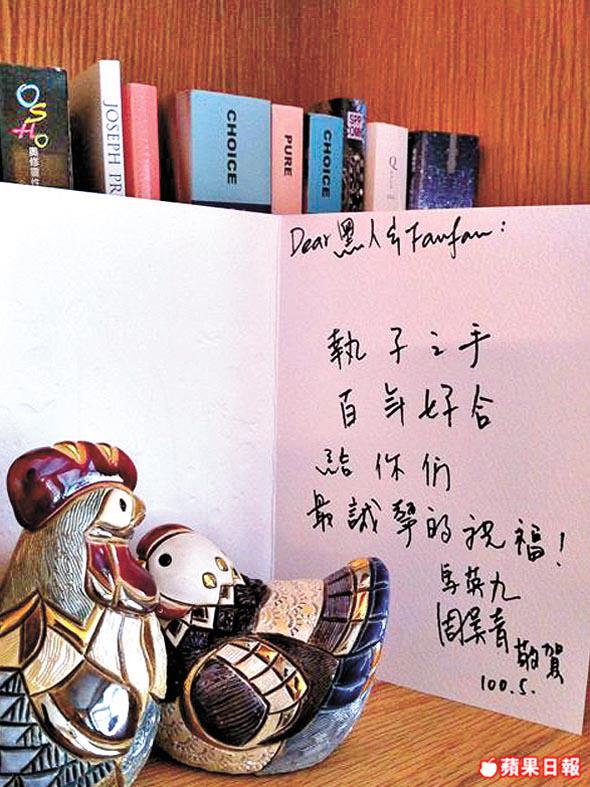 OSHO
奧修靈性
JOSEPH PR
CHOICE
PURE
CHOICE
Q
Dear 黑人&Fanfan:
執子之手
百年好合
給你們
最誠摯的祝福!
馬英九
周美青 敬賀
100.5.
蘋果日報